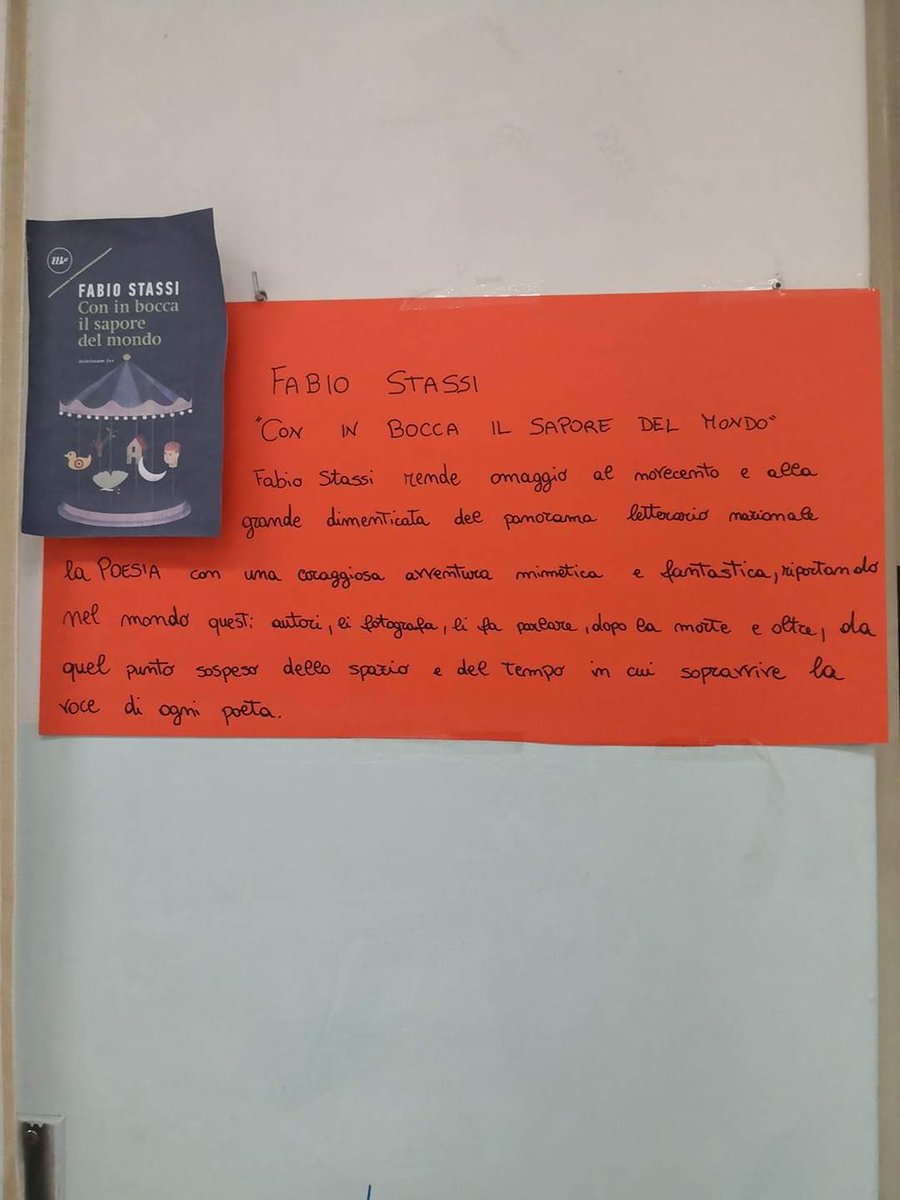 FABIO STASSI
Con in bocca
il sapore
del mondo
minimum fax
FABIO STASSI
"CON IN BOCCA IL SAPORE DEL MONDO"
Fabio Stassi rende omaggio al novecento e alla
grande dimenticata del panorama letterario nazionale
la POESIA con una coraggiosa avventura mimetica e fantastica, riportando
nel mondo questi autori, li fotografa, li fa parlare, dopo la morte e oltre, da
quel punto sospeso dello spazio e del tempo in cui sopravvive la
voce di ogni poeta.